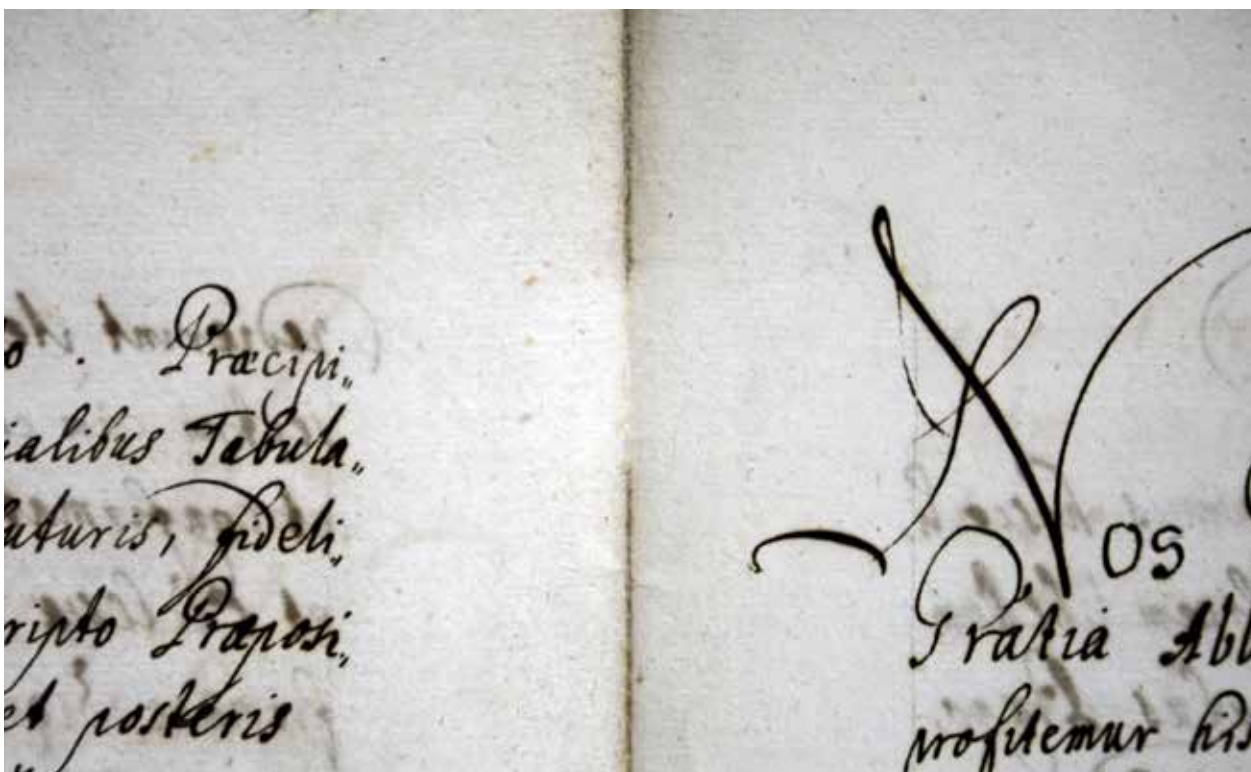 o . Præcipi„
ialibus Tabula„
uturis, fideli„
ripto Præposi„
et posteris
Nos
Gratia Abb
profitemur his